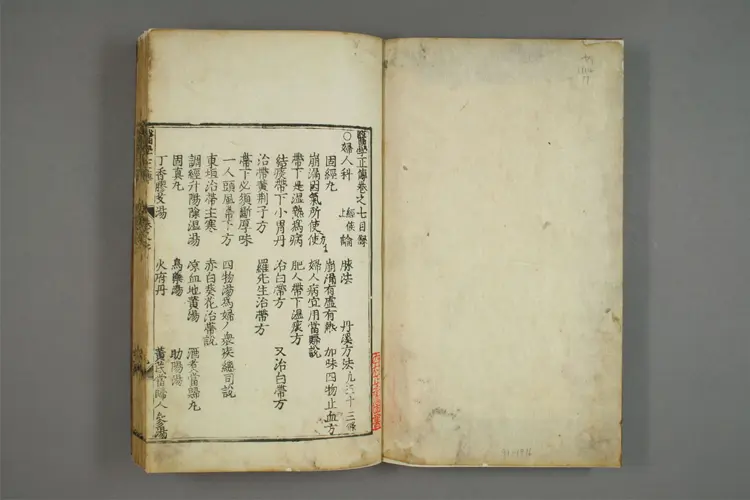 醫學正傳卷之七目録
○婦人科 上 經候 論 脉法 丹溪方法凡六十三條
固經丸 崩漏有虛有熱 加味四物止血方
崩漏因氣所使 婦人病宜用當歸說
帶下是濕熱爲病 肥人帶下濕痰方
結痰帶下小胃丹 治白帶方 又治白帶方
治帶黄荆子方 羅先生治帶方
帶下必須斷厚味
一人頭風帶下方 四物湯爲婦人衆疾總司說
東垣治帶主寒 赤白葵花治帶說
調經升陽除濕湯 凉血地黄湯 酒煑當歸丸
固真丸 烏藥湯 助陽湯
丁香膠艾湯 火府丹 黄芪當歸人參湯